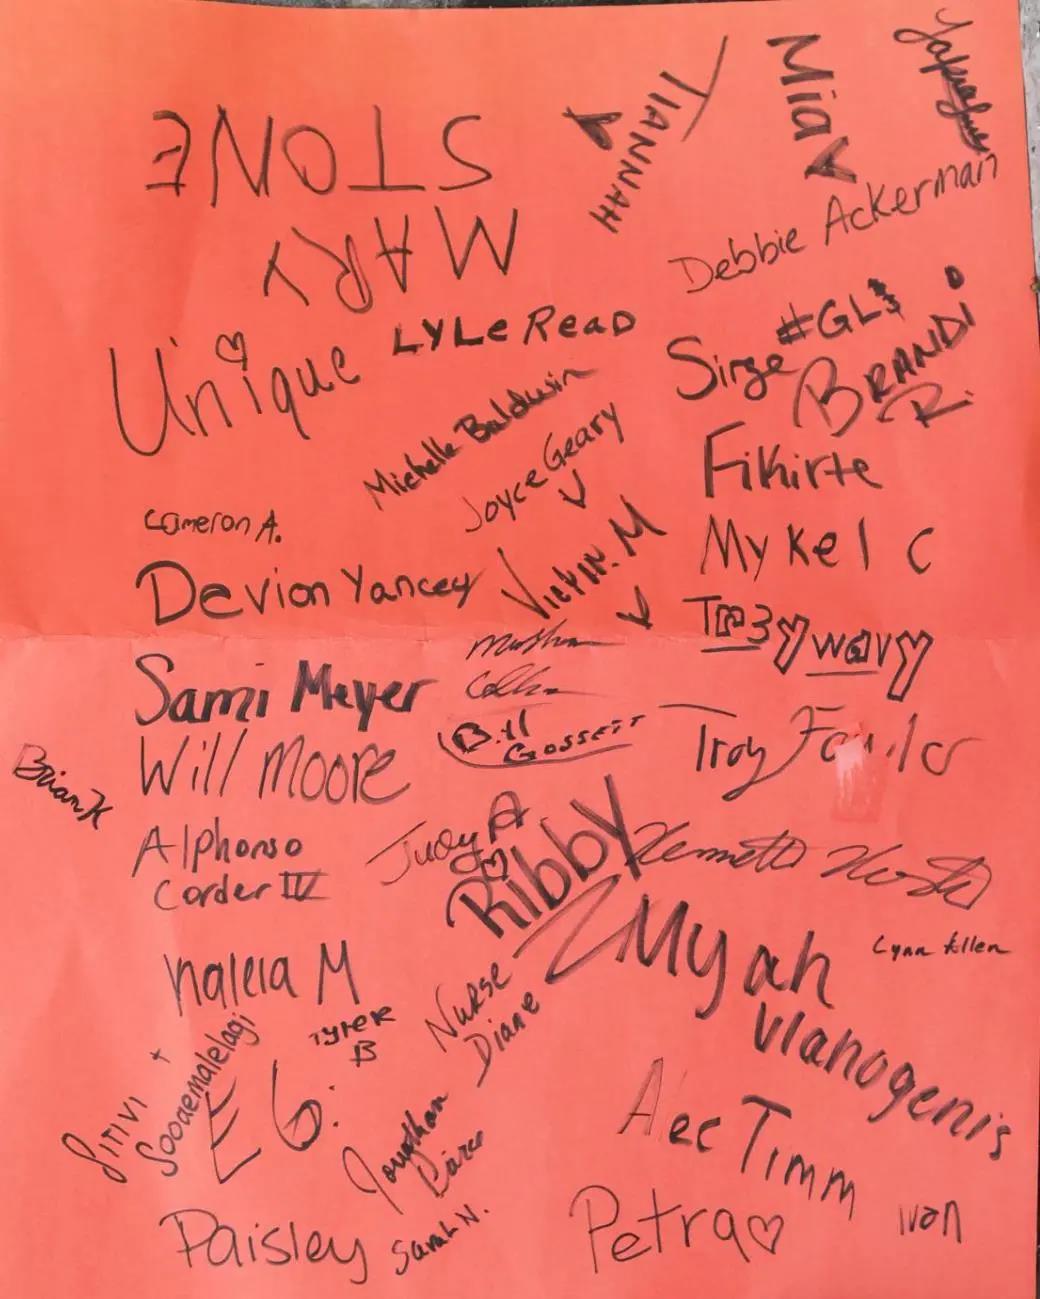 Mia
TIANNAH
STONE
MARY
Debbie Ackerman
#GLB
LYLe ReaD
Sirge
BRANDi
R.
Unique
Michelle Baldwin
Joyce Geary
Fikirte
Cameron A.
Mykel C
Devion Yancey
M
Tr3ywavy
Sami Meyer
Bill
Gossett
Troy
Will Moore
Brian K
Alphonso
Corder IV
Judy A
Ribby
Kenneth
Myah
Lynn Allen
Nalela M
Nurse
Diane
Tyrek
B
Vlanogenis
Sitivi
Sooaemalelagi
E6.
Alec Timm
Jonathan
Pierce
Paisley
Sarah N.
Petra
Ivan